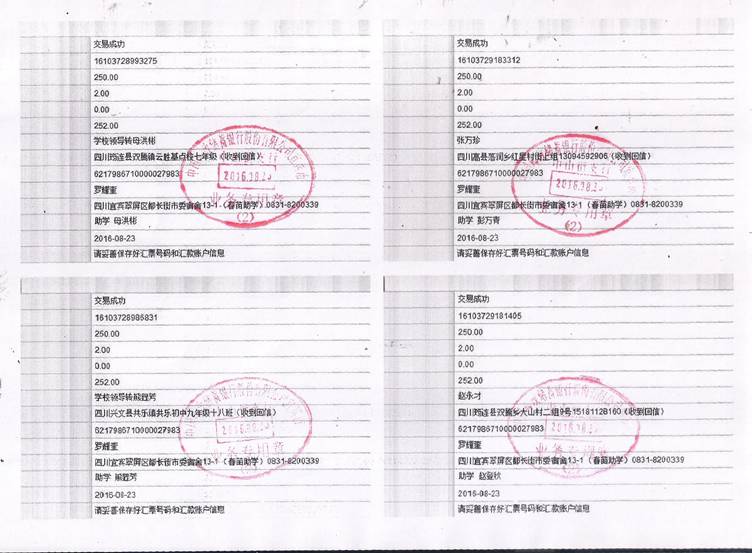 交易成功
16103728993275
250.00
2.00
0.00
252.00
学校领导转母洪彬
四川筠连县双腾镇云胜基点校七年级(收到回信)
6217986710000027983
2016.08.23
罗耀奎
业务专用章
四川宜宾翠屏区都长街市委宿舍13-1(春苗助学)0831-8200339
(2)
助学 母洪彬
2016-08-23
请妥善保存好汇票号码和汇款账户信息
交易成功
16103729183312
250.00
2.00
0.00
252.00
张万珍
四川高县落润乡红星村街上组13094592906(收到回信)
6217986710000027983
2016.08.23
罗耀奎
业务专用章
四川宜宾翠屏区都长街市委宿舍13-1(春苗助学)0831-8200339
(2)
助学 彭万青
2016-08-23
请妥善保存好汇票号码和汇款账户信息
交易成功
16103728985831
250.00
2.00
0.00
252.00
学校领导转熊霞芳
四川兴文县共乐镇共乐初中九年级十八班(收到回信)
6217986710000027983
2016.08.23
罗耀奎
业务专用章
四川宜宾翠屏区都长街市委宿舍13-1(春苗助学)0831-8200339
助学 熊霞芳
2016-08-23
请妥善保存好汇票号码和汇款账户信息
交易成功
16103729181405
250.00
2.00
0.00
252.00
赵永才
四川筠连县双腾乡大山村二组9号15181128160(收到回信)
6217986710000027983
2016.08.23
罗耀奎
业务专用章
四川宜宾翠屏区都长街市委宿舍13-1(春苗助学)0831-8200339
助学 赵登秋
2016-08-23
请妥善保存好汇票号码和汇款账户信息